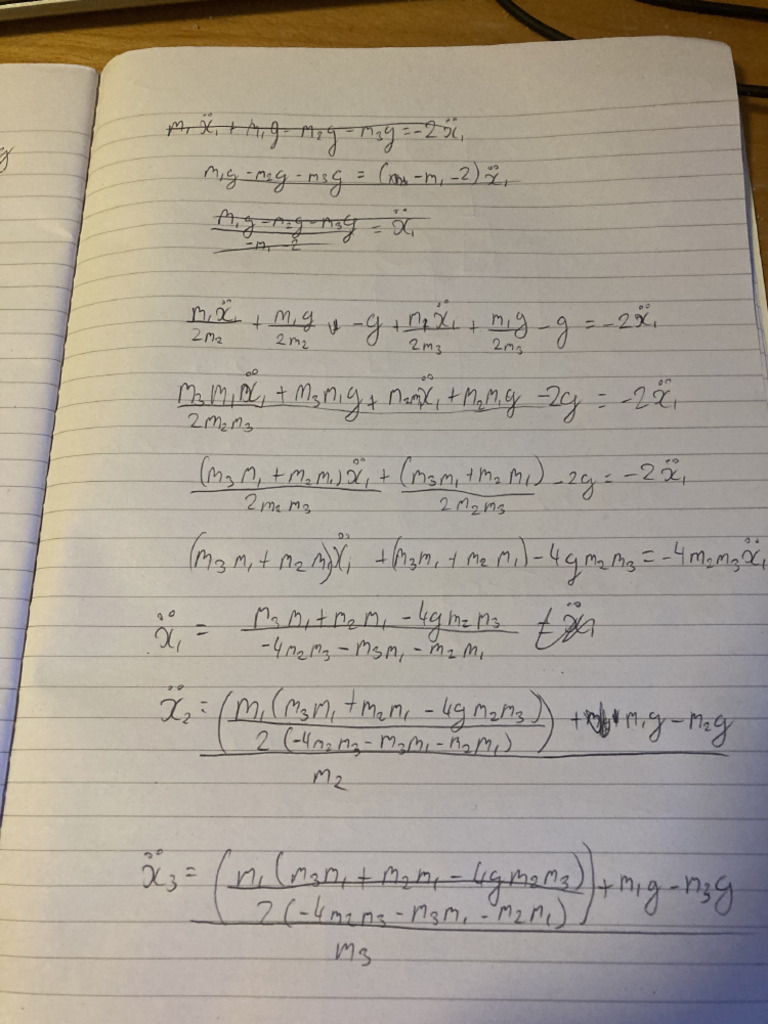 m₁ẍ₁ + m₁g - m₂g - m₃g = -2ẍ₁
m₁g - m₂g - m₃g = (-m₁ - 2)ẍ₁
(m₁g - m₂g - m₃g)/(-m₁ - 2) = ẍ₁
m₁ẍ₁/2m₂ + m₁g/2m₂ - g + m₁ẍ₁/2m₃ + m₁g/2m₃ - g = -2ẍ₁
(m₃m₁ẍ₁ + m₃m₁g + m₂m₁ẍ₁ + m₂m₁g)/2m₂m₃ - 2g = -2ẍ₁
(m₃m₁ + m₂m₁)ẍ₁/2m₂m₃ + (m₃m₁ + m₂m₁)/2m₂m₃ - 2g = -2ẍ₁
(m₃m₁ + m₂m₁)ẍ₁ + (m₃m₁ + m₂m₁) - 4gm₂m₃ = -4m₂m₃ẍ₁
ẍ₁ = (m₃m₁ + m₂m₁ - 4gm₂m₃)/(-4m₂m₃ - m₃m₁ - m₂m₁)
ẍ₂ = ((m₁(m₃m₁ + m₂m₁ - 4gm₂m₃)/2(-4m₂m₃ - m₃m₁ - m₂m₁)) + m₁g - m₂g)/m₂
ẍ₃ = ((m₁(m₃m₁ + m₂m₁ - 4gm₂m₃)/2(-4m₂m₃ - m₃m₁ - m₂m₁)) + m₁g - m₃g)/m₃